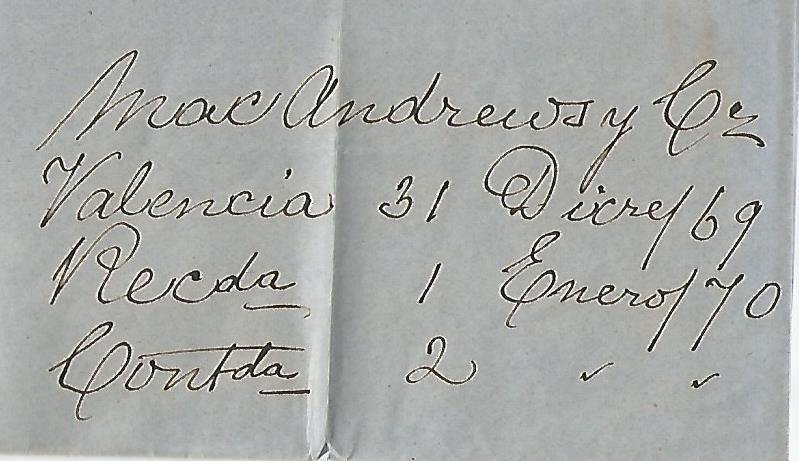 Mac Andrews y Cª
Valencia 31 Dixre/69
Recda 1 Enero/70
Contda 2 " "